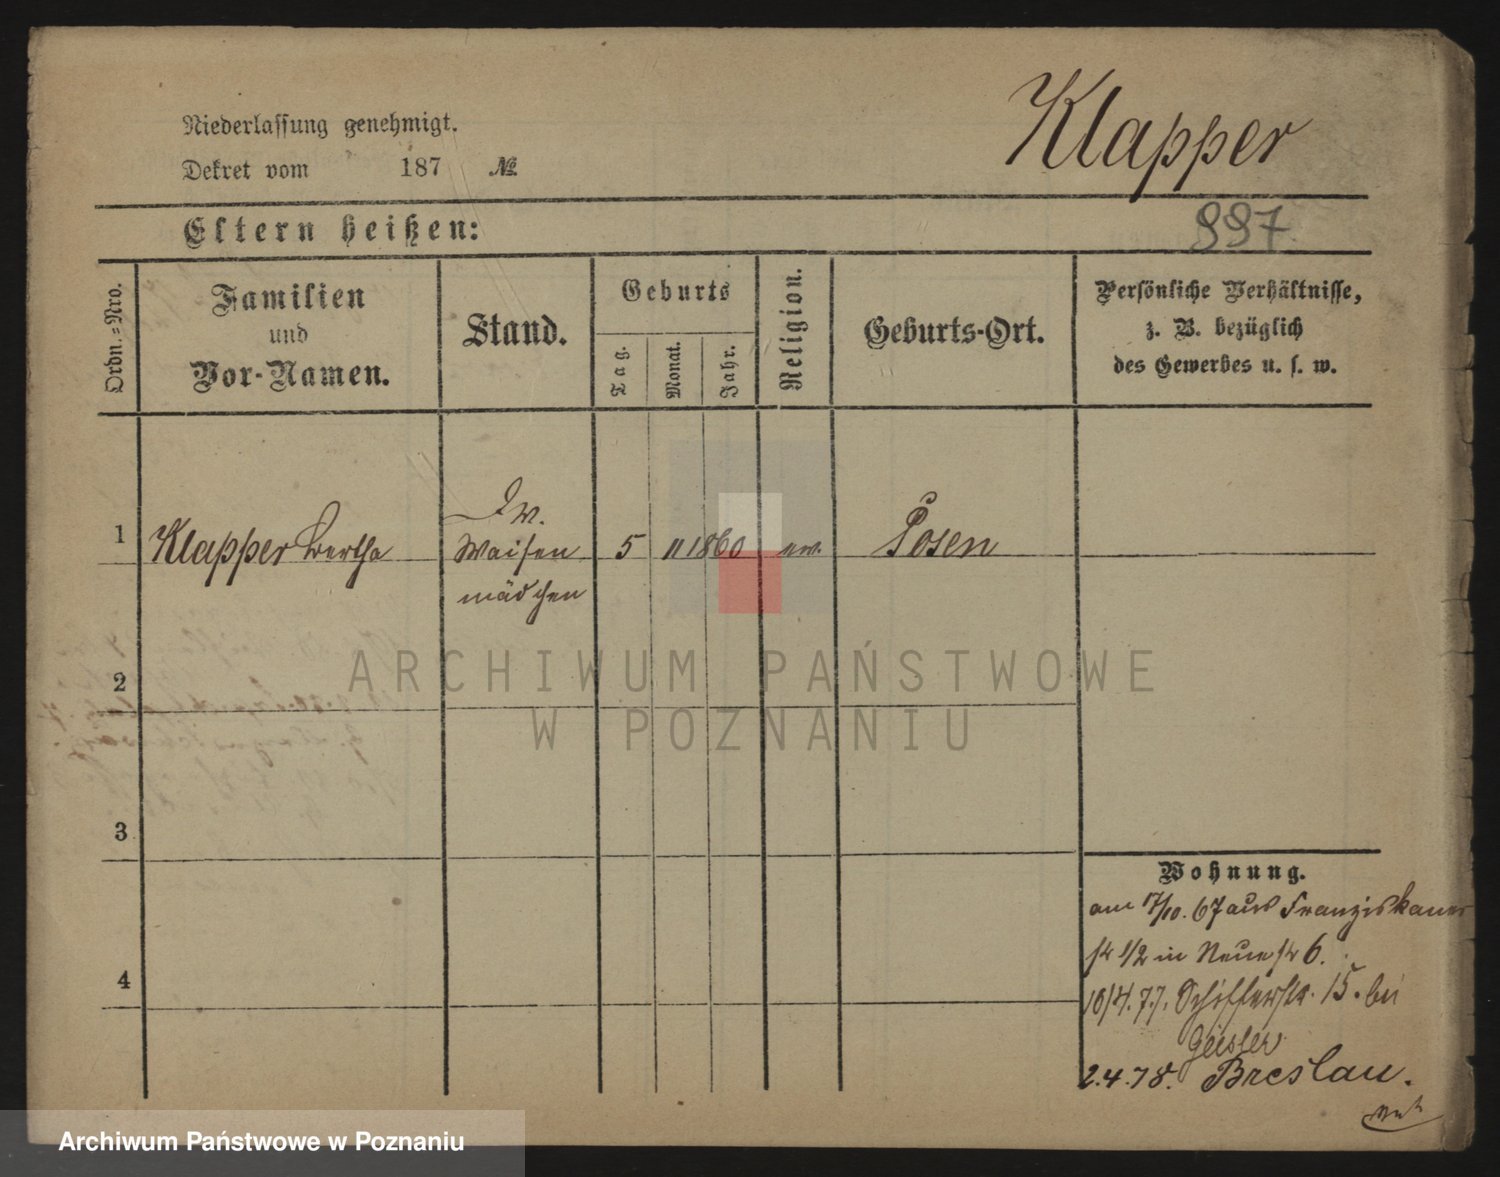 Niederlassung genehmigt.
Dekret vom 187 №
Klapper
997
Eltern heißen:
Ordn.=Nro.
Familien
und
Vor-Namen.
Stand.
Geburts
Tag.
Monat.
Jahr.
Religion.
Geburts-Ort.
Persönliche Verhältnisse,
z. B. bezüglich
des Gewerbes u. s. w.
1 Klapper Bertha
Waisen
mädchen
5 11 1860 ev. Posen
2
3
4
ARCHIWUM PAŃSTWOWE
W POZNANIU
Wohnung.
am 17/10. 67 aus Franziskaner
str 1/2 in Neue str 6.
10/4. 77. Schifferstr. 15. bei
Geisler
2.4.78. Breslau.
Archiwum Państwowe w Poznaniu